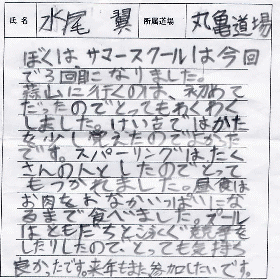 氏名 水尾 翼 所属道場 丸亀道場
ぼくは、サマースクールは今回
で3回目になりました。
蒜山に行くのは、初めて
だったのでとてもわくわく
しました。けいこではかた
を少し覚えたのでよかった
です。スパーリングは、たく
さんの人としたのでとって
もつかれました。昼食は
お肉をおなかいっぱいにな
るまで食べました。プール
はともだちと泳ぐ競争を
したりしたので、とっても気持ち
良かったです。来年もまた参加したいです。